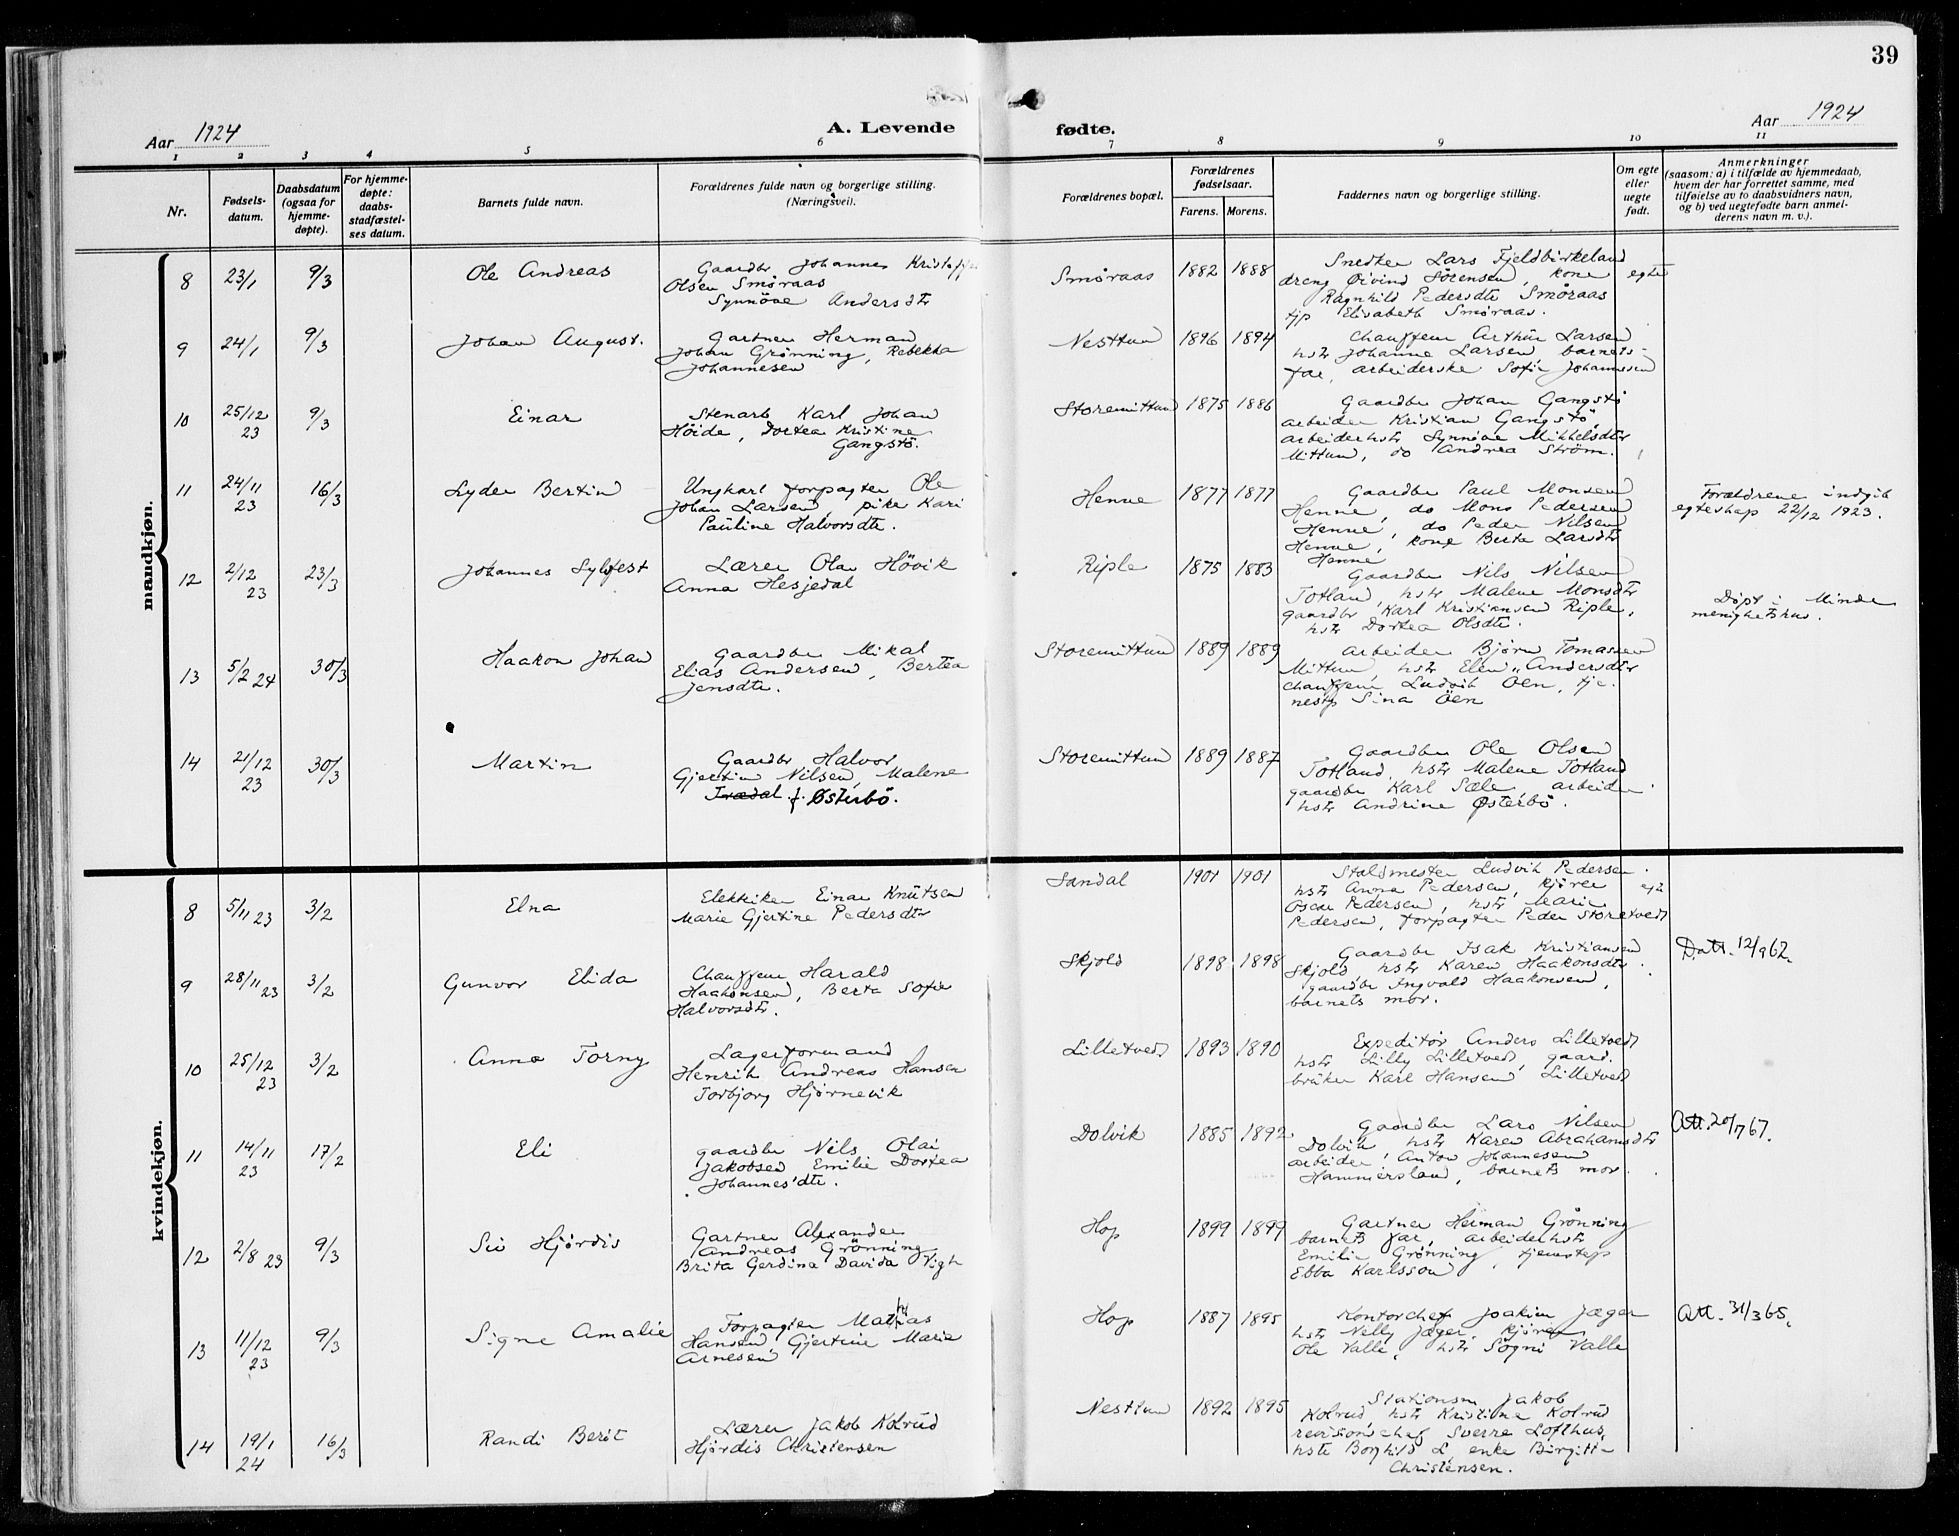 39
Aar 1924
A. Levende
fødte.
Aar 1924
1 2 3 4 5 6 7 8 9 10 11
Nr.
Fødsels-
datum.
Daabsdatum
(ogsaa for
hjemme-
døpte).
For hjemme-
døpte:
daabs-
stadfæstel-
ses datum.
Barnets fulde navn.
Forældrenes fulde navn og borgerlige stilling.
(Næringsvei).
Forældrenes bopæl.
Forældrenes
fødselsaar.
Farens. Morens.
Faddernes navn og borgerlige stilling.
Om egte
eller
uegte
født.
Anmerkninger
(saasom: a) i tilfælde av hjemmedaab,
hvem der har forrettet samme, med
tilføielse av to daabsvidners navn,
og b) ved uegtefødte barn anmel-
derens navn m. v.).
mandkjøn.
8 23/1 9/3 Ole Andreas
Gaardbr Johannes
Olsen Smøraas
Synnöve Andersdtr
Smøraas 1882 1888
Snedker Lars Fjeldbirkeland
dreng Øivind Sörensen, kone
Ragnhild Pedersdtr Smöraas
tjp Elisabeth Smøraas.
egte
9 24/1 9/3 Johan August.
Gartner Herman
Johan Grønning, Rebekka
Johannesen
Nesttun 1896 1894
Chauffeur Arthur Larsen
hstr Johanne Larsen, barnets
far, arbeiderske Sofie Johannesen
10 25/12 23 9/3 Einar
Stenarb Karl Johan
Höide, Dortea Kristine
Gangstö.
Storemittun 1875 1886
Gaardbr Johan Gangstö
arbeider Kristian Gangstö,
arbeiderhstr Synnöve Mikkelsdtr
Mittun, do Andrea Ström.
11 24/11 23 16/3 Lyder Bertin
Ungkarl forpagter Ole
Johan Larsen, pike Kari
Pauline Halvorsdtr.
Henne 1877 1877
Gaardbr Paul Monsen
Henne, do Mons Pedersen
Henne, do Peder Nilsen
Henne, kone Berta Larsdtr
Henne
Forældrene indgik
egteskap 22/12 1923.
12 2/12 23 23/3 Johannes Sylfest
Lærer Olav Hövik
Anna Hesjedal
Riple 1875 1883
Gaardbr Nils Nilsen
Totland, hstr Malene Monsdtr
gaardbr Karl Kristiansen Riple,
hstr Dortea Olsdtr.
Døpt i Minde
menighetshus.
13 5/2 24 30/3 Haakon Johan
Gaardbr Mikal
Elias Andersen, Bertea
Jensdtr.
Storemittun 1889 1889
Arbeider Bjørn Tomassen
Mittun, hstr Elen Andersdtr
chauffeur Ludvik Öen, tje-
nestp Sina Öen
14 21/12 23 30/3 Martin
Gaardbr Halvor
Gjertin Nilsen, Malene
Trædal f. Østerbö.
Storemittun 1889 1887
Gaardbr Ole Olsen
Totland, hstr Malene Totland
gaardbr Karl Sæle, arbeider
hstr Andrine Østerbö.
kvindekjøn.
8 5/11 23 3/2 Elna
Elektriker Einar Knutsen
Marie Gjertine Pedersdtr
Sandal 1901 1901
Staldmester Ludvik Pedersen
hstr Anna Pedersen, kjører
Oscar Pedersen, hstr Marie
Pedersen, forpagter Peder Storetvedt
9 28/11 23 3/2 Gunvor Elida
Chauffeur Harald
Haakonsen, Berta Sofie
Halvorsdtr.
Skjold 1898 1898
Gaardbr Isak Kristiansen
Skjold, hstr Karen Haakonsdtr
gaardbr Ingvald Haakonsen,
barnets mor.
Datt. 12/9 62.
10 25/12 23 3/2 Anna Torny
Lagerformand
Henrik Andreas Hansen
Torbjorg Hjørnevik
Lilletvedt 1893 1890
Expeditør Anders Lilletvedt
hstr Lilly Lilletvedt, gaard-
bruker Karl Hansen Lilletvedt
11 14/11 23 17/2 Eli
gaardbr Nils Olai
Jakobsen Emilie Dortea
Johannesdtr.
Dolvik 1885 1892
Gaardbr Lars Nilsen
Dolvik hstr Karen Abrahamsdtr
arbeider Anton Johannesen
Hammersland, barnets mor.
Att. 20/7 67.
12 2/8 23 9/3 Siv Hjørdis
Gartner Alexander
Andreas Grönning
Brita Gerdina Davida Vigh
Hop 1899 1899
Gartner Herman Grönning
barnets far, arbeiderhstr
Emilie Grønning, tjenestep
Ebba Karlsson
13 11/12 23 9/3 Signe Amalie
Forpagter Mathias
Hansen, Gjertine Marie
Arnesen
Hop 1887 1895
Kontorchef Joakim Jæger
hstr Nelly Jæger, kjører
Ole Valle, hstr Sögni Valle
Att. 31/3 65.
14 19/1 24 16/3 Randi Berit
Lærer Jakob Kolrud
Hjördis Christensen
Nesttun 1892 1895
Stationsm Jakob
Kolrud, hstr Kristine Kolrud
revisionschef Sverre Lofthus,
hstr Borghild L, enke Birgitte
Christensen.